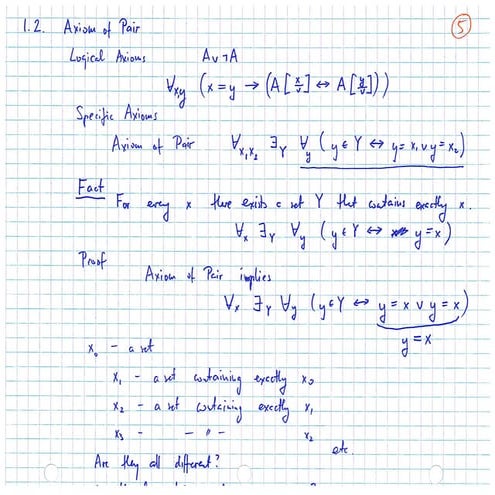 1.2. Axiom of Pair ⑤
Logical Axioms A ∨ ¬A
∀x,y (x = y → (A[x/v] ↔ A[y/v]))
Specific Axioms
Axiom of Pair ∀x₁,x₂ ∃Y ∀y (y ∈ Y ↔ y = x₁ ∨ y = x₂)
Fact
For every x there exists a set Y that contains exactly x.
∀x ∃Y ∀y (y ∈ Y ↔ y = x)
Proof
Axiom of Pair implies
∀x ∃Y ∀y (y ∈ Y ↔ y = x ∨ y = x)
y = x
x₀ – a set
x₁ – a set containing exactly x₀
x₂ – a set containing exactly x₁
x₃ – – " – x₂
etc.
Are they all different?